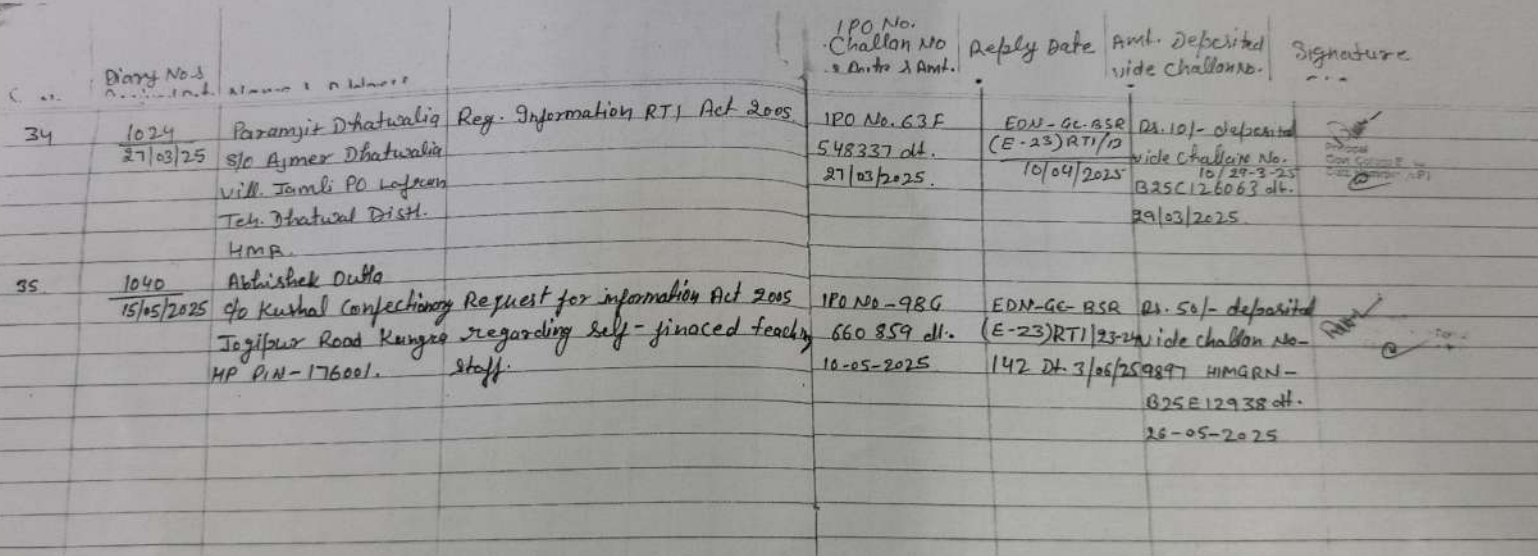 IPO No.
Challan No
& Amt.
Reply Date
Amt. Deposited
vide Challan No.
Signature
Diary No. &
34
1024
27/03/25
Paramjit Dhatwalia
S/o Ajmer Dhatwalia
Vill. Jamli PO
Teh. Dhatwal Distt.
HMR.
Reg. Information RTI Act 2005
IPO No. 63F
548337 dt.
27/03/2025.
EDN-GC-BSR
(E-23)RTI/12
10/04/2025
Rs. 10/- deposited
vide Challan No.
10/29-3-25
B25C126063 dt.
29/03/2025
35
1040
15/05/2025
Abhishek Dutta
c/o Kushal Confectionary
Jogipur Road Kangra
HP PIN-176001.
Request for information Act 2005
regarding self-finaced teaching
staff.
IPO No-98G
660 859 dt.
10-05-2025
EDN-GC-BSR
(E-23)RTI/23-24
142 Dt. 3/06/25
Rs. 50/- deposited
vide challan No-
9897 HIMGRN-
B25E12938 dt.
26-05-2025